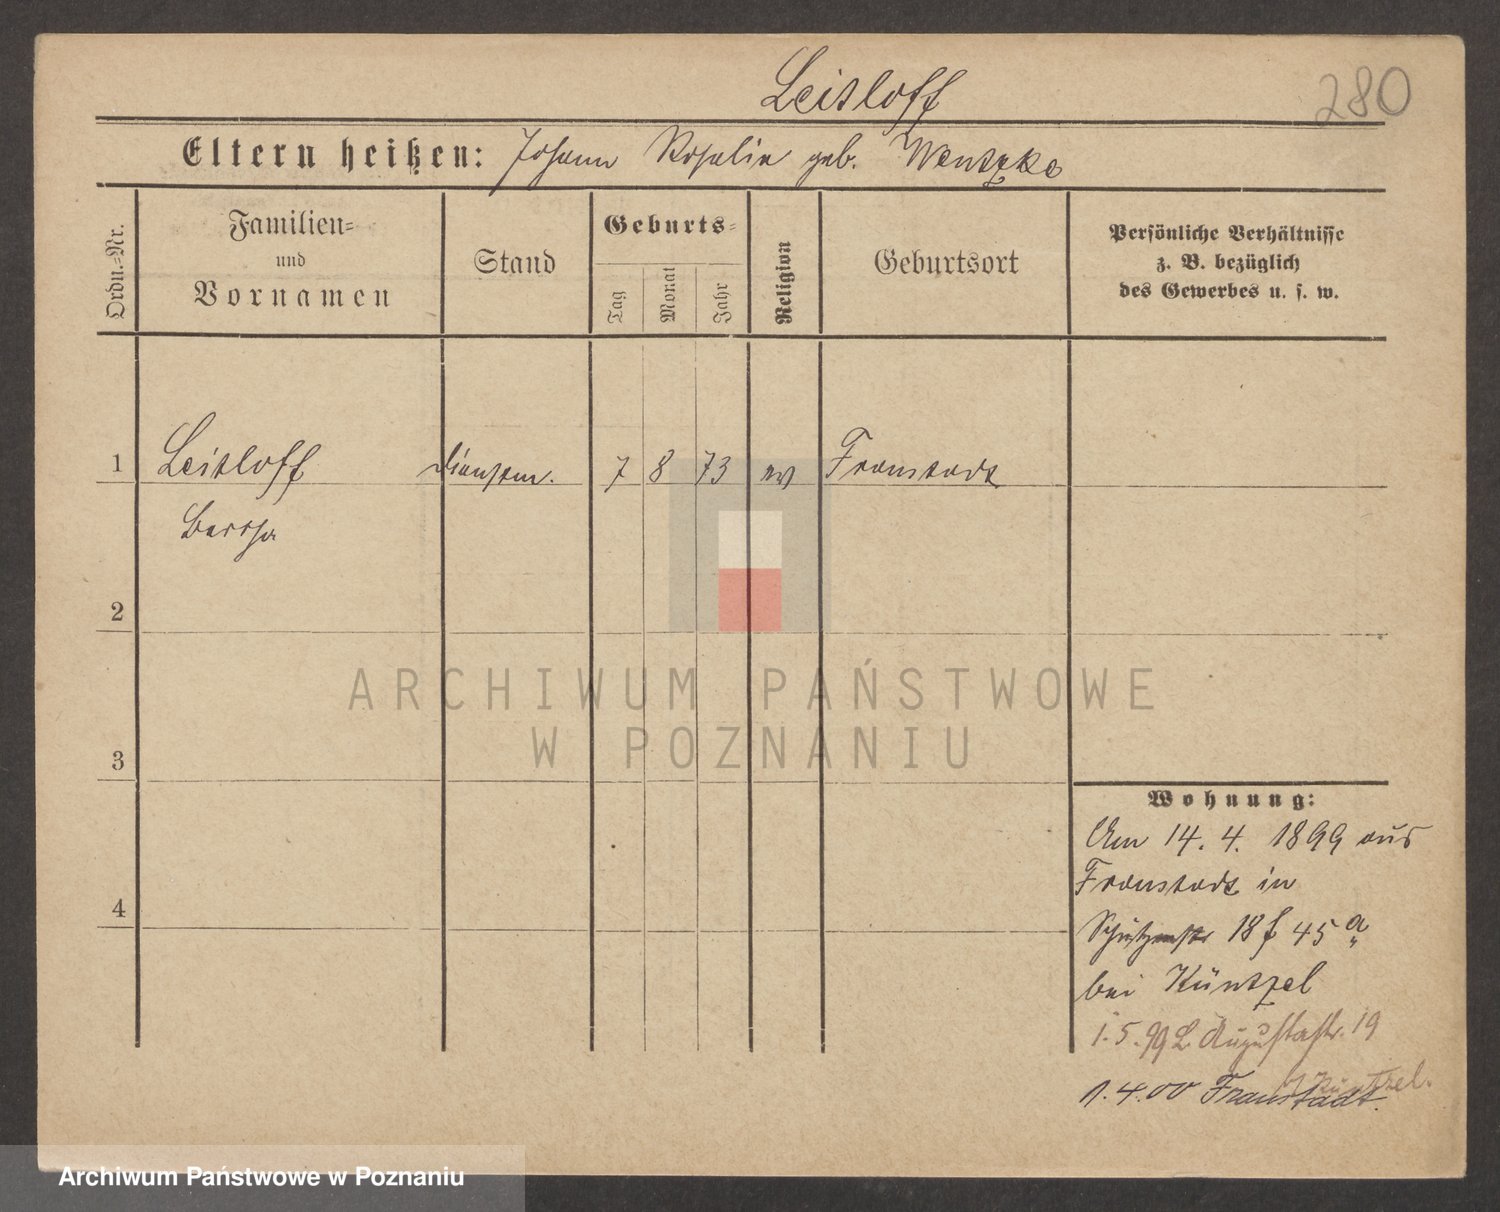 Leitloff
280
Eltern heißen: Johann Rosalie geb. Wentzke
Ordn.-Nr.
Familien-
und
Vornamen
Stand
Geburts-
Tag
Monat
Jahr
Religion
Geburtsort
Persönliche Verhältnisse
z. B. bezüglich
des Gewerbes u. s. w.
1 Leitloff Dienstm. 7 8 73 ev Fraustadt
Bertha
2
3
4
Wohnung:
Am 14. 4. 1899 aus
Fraustadt in
Schützenstr 18 f 45 a
bei Küntzel
1.5.99 L. Augustastr. 19
b Küntzel.
1.4.00 Fraustadt.
ARCHIWUM PAŃSTWOWE
W POZNANIU
Archiwum Państwowe w Poznaniu